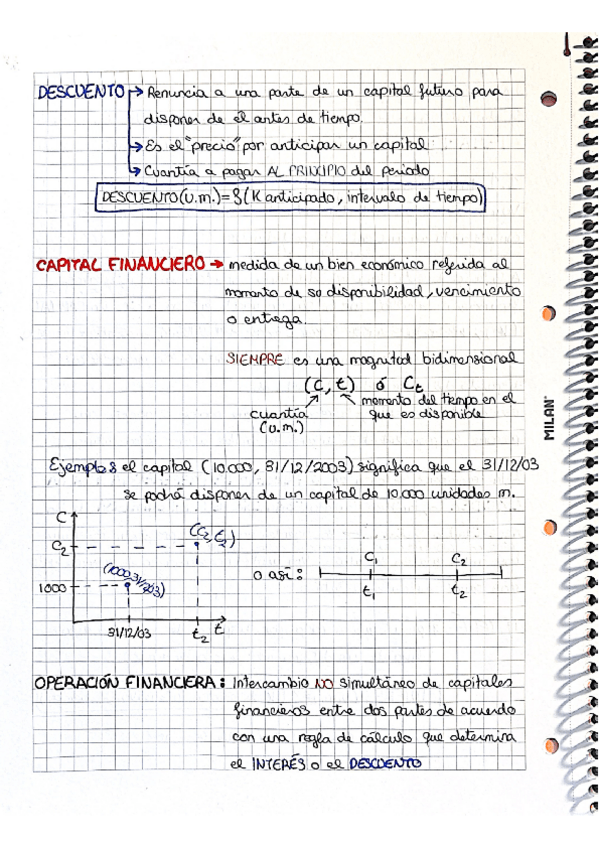 DESCUENTO → Renuncia a una parte de un capital futuro para
disponer de él antes de tiempo.
→ Es el "precio" por anticipar un capital
→ Cuantía a pagar AL PRINCIPIO del periodo
DESCUENTO (u.m.) = f (K anticipado, intervalo de tiempo)
CAPITAL FINANCIERO → medida de un bien económico referida al
momento de su disponibilidad, vencimiento
o entrega.
SIEMPRE es una magnitud bidimensional
(C, t) ó Ct
cuantía (u.m.)
momento del tiempo en el
que es disponible
Ejemplo: el capital (10.000, 31/12/2003) significa que el 31/12/03
se podrá disponer de un capital de 10.000 unidades m.
C
C2
(C2, t2)
1000
31/12/03
t2
t
o así:
C1
C2
t1
t2
OPERACIÓN FINANCIERA: Intercambio NO simultáneo de capitales
financieros entre dos partes de acuerdo
con una regla de cálculo que determina
el INTERÉS o el DESCUENTO
MILAN